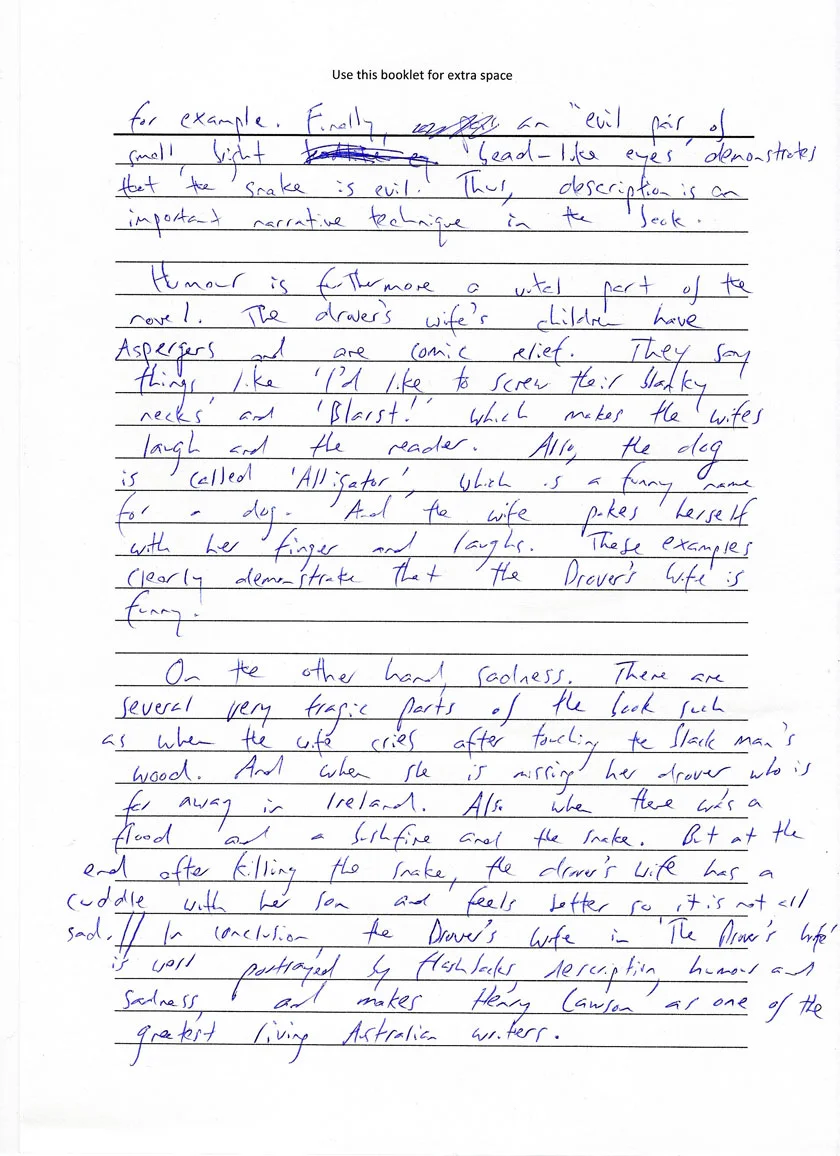 Use this booklet for extra space
for example. Finally, an "evil pair of
small bright 'bead-like eyes' demonstrates
that the snake is evil. Thus, description is an
important narrative technique in the book.
Humour is furthermore a vital part of the
novel. The drover's wife's children have
Aspergers and are comic relief. They say
things like 'I'd like to screw their blanky
necks' and 'Blarst!' which makes the wifes
laugh and the reader. Also, the dog
is called 'Alligator', which is a funny name
for a dog. And the wife pokes herself
with her finger and laughs. These examples
clearly demonstrate that the Drover's Wife is
funny.
On the other hand, sadness. There are
several very tragic parts of the book such
as when the wife cries after touching the black man's
wood. And when she is missing her drover who is
far away in Ireland. Also when there was a
flood and a bushfire and the snake. But at the
end after killing the snake, the drover's wife has a
cuddle with her son and feels better so it is not all
sad. // In conclusion, the Drover's Wife in 'The Drover's Wife'
is well portrayed by flashbacks, description, humour and
sadness, and makes Henry Lawson as one of the
greatest living Australian writers.